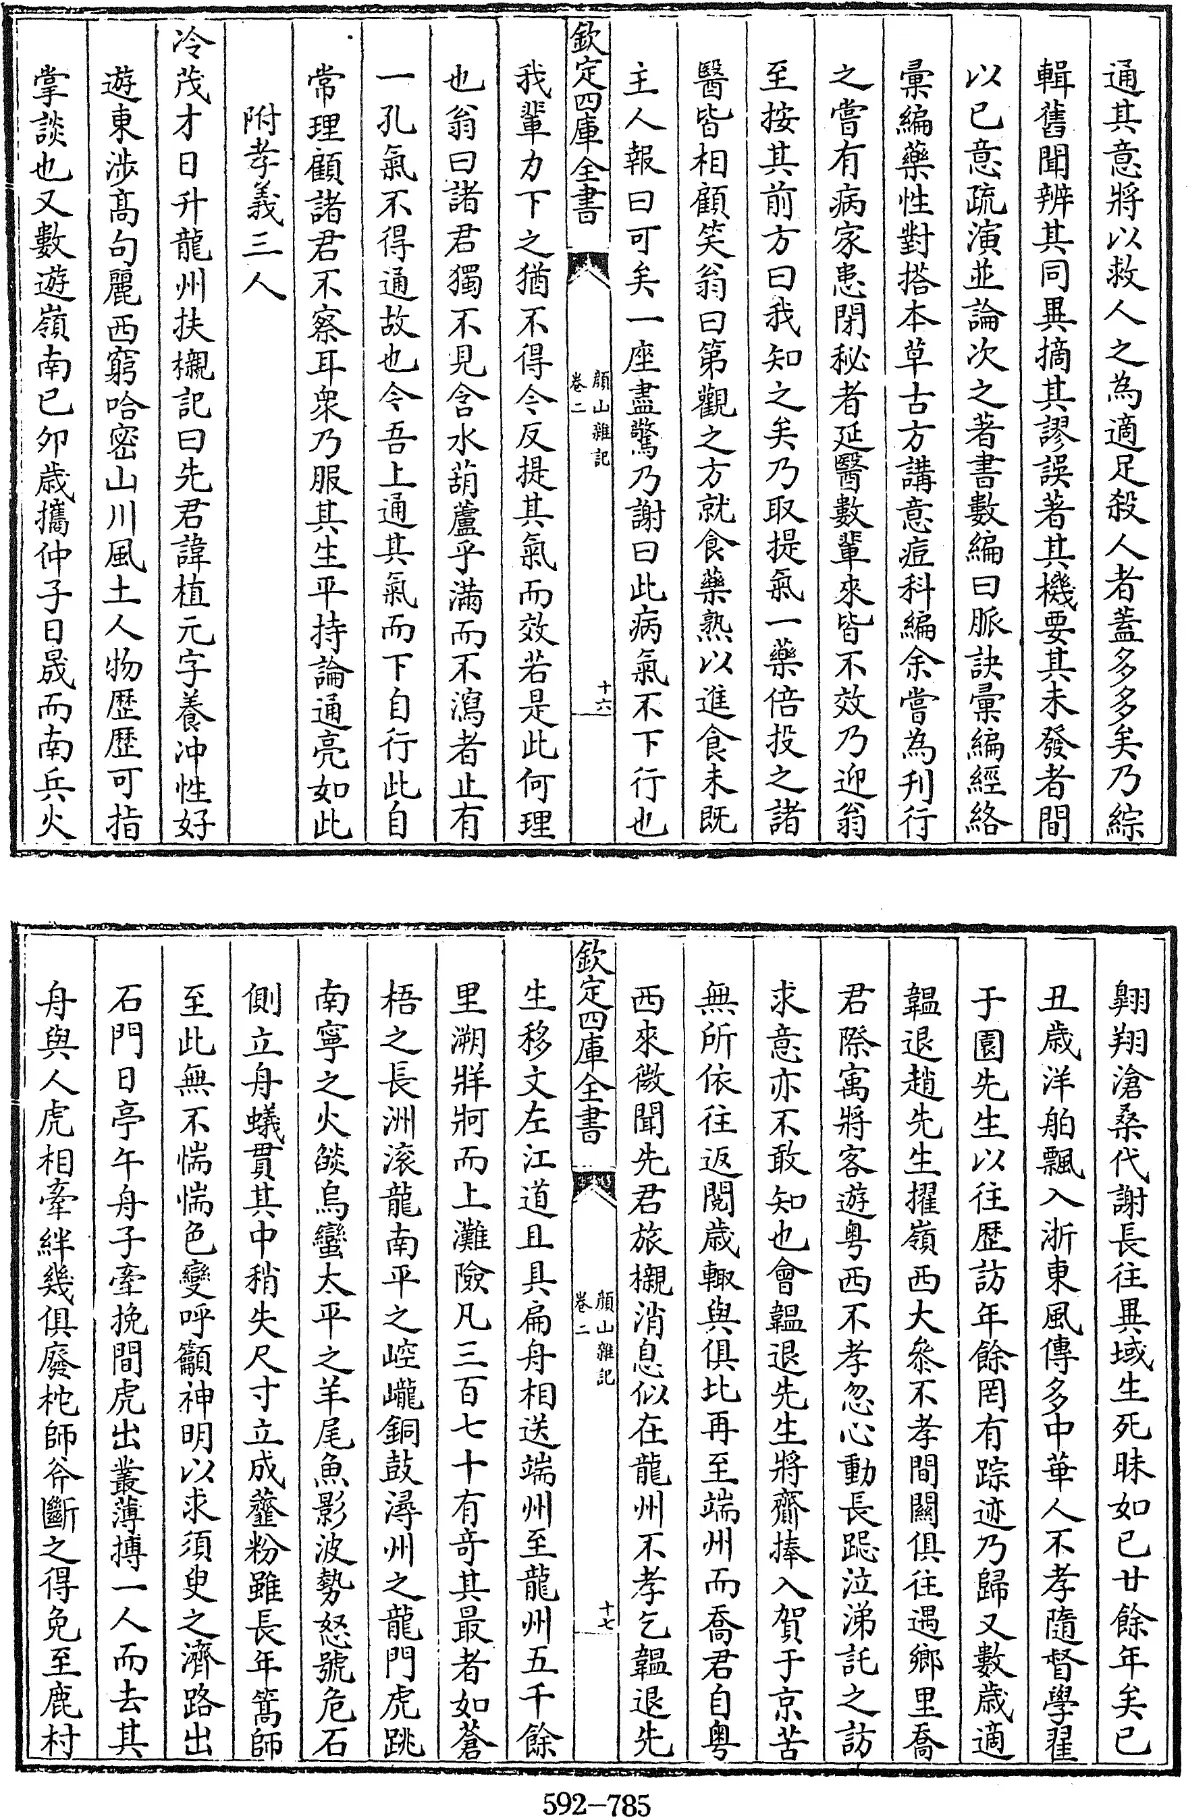 通其意將以救人之為適足殺人者蓋多多矣乃綜
輯舊聞辨其同異摘其謬誤著其機要其未發者間
以已意疏演並論次之著書數編曰脈訣彙編經絡
彙編藥性對搭本草古方講意痘科編余嘗為刋行
之嘗有病家患閉秘者延醫數輩來皆不效乃迎翁
至按其前方曰我知之矣乃取提氣一藥倍投之諸
醫皆相顧笑翁曰第觀之方就食藥熟以進食未既
主人報曰可矣一座盡驚乃謝曰此病氣不下行也
欽定四庫全書
顏山雜記
卷二
十六
我輩力下之猶不得今反提其氣而效若是此何理
也翁曰諸君獨不見含水葫蘆乎滿而不瀉者止有
一孔氣不得通故也今吾上通其氣而下自行此自
常理顧諸君不察耳衆乃服其生平持論通亮如此
附孝義三人
冷茂才日升龍州扶櫬記曰先君諱植元字養沖性好
遊東渉髙句麗西窮哈密山川風土人物歴歴可指
掌談也又數遊嶺南已夘歳攜仲子日晟而南兵火
翺翔滄桑代謝長往異域生死昧如已廿餘年矣已
丑歳洋舶飄入浙東風傳多中華人不孝隨督學翟
于園先生以往歴訪年餘罔有踪迹乃歸又數歳適
韞退趙先生擢嶺西大叅不孝間關俱往遇鄉里喬
君際寓將客遊粤西不孝忽心動長跽泣涕託之訪
求意亦不敢知也會韞退先生將齎捧入賀于京苦
無所依往返閱歳輙與俱比再至端州而喬君自粤
西來微聞先君旅櫬消息似在龍州不孝乞韞退先
欽定四庫全書
顏山雜記
卷二
十七
生移文左江道且具扁舟相送端州至龍州五千餘
里溯牂牁而上灘險凡三百七十有竒其最者如蒼
梧之長洲滚龍南平之崆巄銅鼓潯州之龍門虎跳
南寧之火燄烏蠻太平之羊尾魚影波勢怒號危石
側立舟蟻貫其中稍失尺寸立成虀粉雖長年篙師
至此無不惴惴色變呼籲神明以求須臾之濟路出
石門日亭午舟子牽挽間虎出叢薄搏一人而去其
舟與人虎相牽絆幾俱廢柁師斧斷之得免至鹿村
592-785